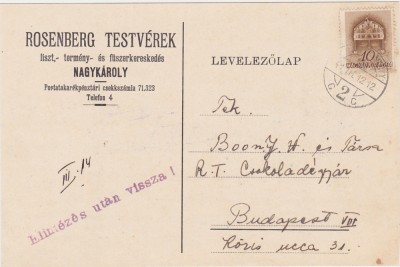 ROSENBERG TESTVÉREK
liszt,- termény- és fűszerkereskedés
NAGYKÁROLY
Postatakarékpénztári csekkszámla 71,323
Telefon 4
LEVELEZŐLAP
10
III. 14
Elintézés után vissza!
Tek.
Boon H. és Társa
R.T. Csokoládégyár
Budapest VIII.
Kőris ucca 31.